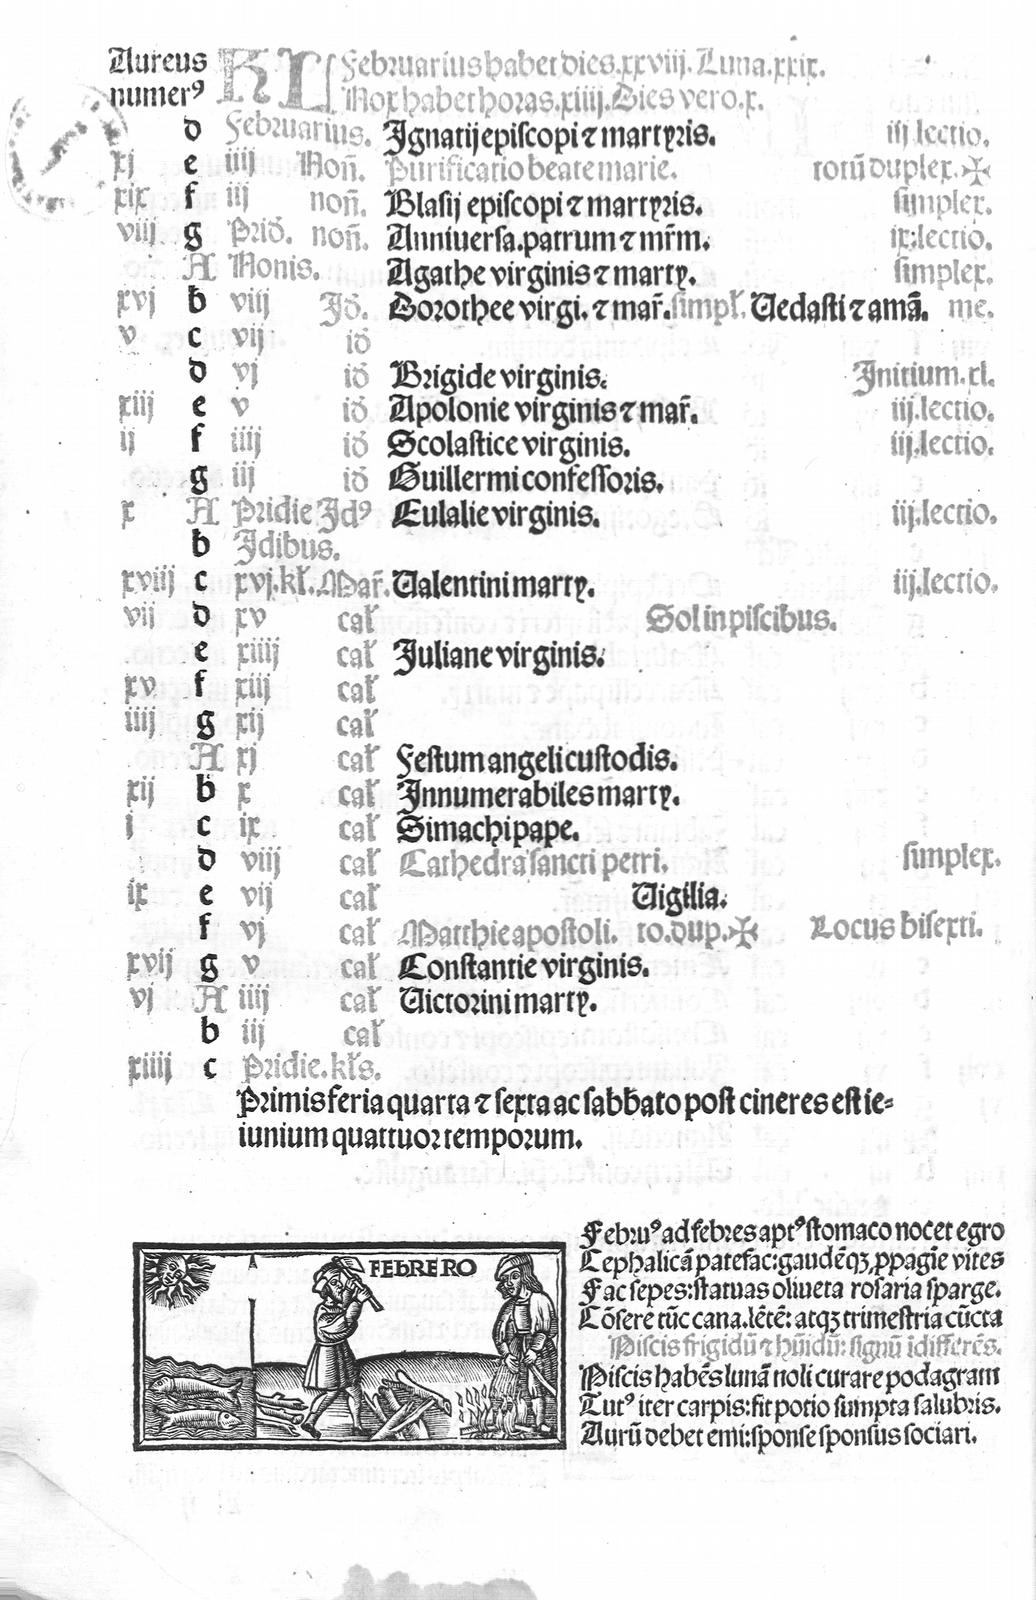 Aureus numerꝰ KL Februarius habet dies.xxviij. Luna.xxix.
Nox habet horas.xiiij. Dies vero.x.
d Februarius. Ignatij episcopi ⁊ martyris. iij.lectio.
xj e iiij Noñ. Purificatio beate marie. totũ duplex.✠
xix f iij noñ. Blasij episcopi ⁊ martyris. simplex.
viij g Prid. noñ. Anniuersa.patrum ⁊ mr̃m. ix.lectio.
A Nonis. Agathe virginis ⁊ marty. simplex.
xvj b viij Jd. Dorothee virgi. ⁊ mar̃.simpl. Uedasti ⁊ amã. me.
v c vij id
d vj id Brigide virginis. Initium.xl.
xiij e v id Apolonie virginis ⁊ mar̃. iij.lectio.
ij f iiij id Scolastice virginis. iij.lectio.
g iij id Guillermi confessoris.
x A Pridie Idꝰ Eulalie virginis. iij.lectio.
b Idibus.
xviij c xvj.kł.Mar̃. Ualentini marty. iij.lectio.
vij d xv cał Sol in piscibus.
e xiiij cał Juliane virginis.
xv f xiij cał
iiij g xij cał
A xj cał Festum angeli custodis.
xij b x cał Innumerabiles marty.
j c ix cał Simachi pape.
d viij cał Cathedra sancti petri. simplex.
ix e vij cał Uigilia.
f vj cał Matthie apostoli. to.dup.✠ Locus bisexti.
xvij g v cał Constantie virginis.
vj A iiij cał Uictorini marty.
b iij cał
xiiij c Pridie.kłs.
Primis feria quarta ⁊ sexta ac sabbato post cineres est ie-
iunium quattuor temporum.
FEBRERO
Februꝰ ad febres aptꝰ stomaco nocet egro
Cephalicã patefac: gaudẽqꝫ ꝓpagĩe vites
Fac sepes: statuas oliueta rosaria sparge.
Cõsere tũc cana.lẽtẽ: atqꝫ trimestria cũcta
Piscis frigidũ ⁊ hũidũ: signũ ĩdifferẽs.
Piscis habẽs lunã noli curare podagram
Tutꝰ iter carpis: fit potio sumpta salubris.
Aurũ debet emi: sponse sponsus sociari.